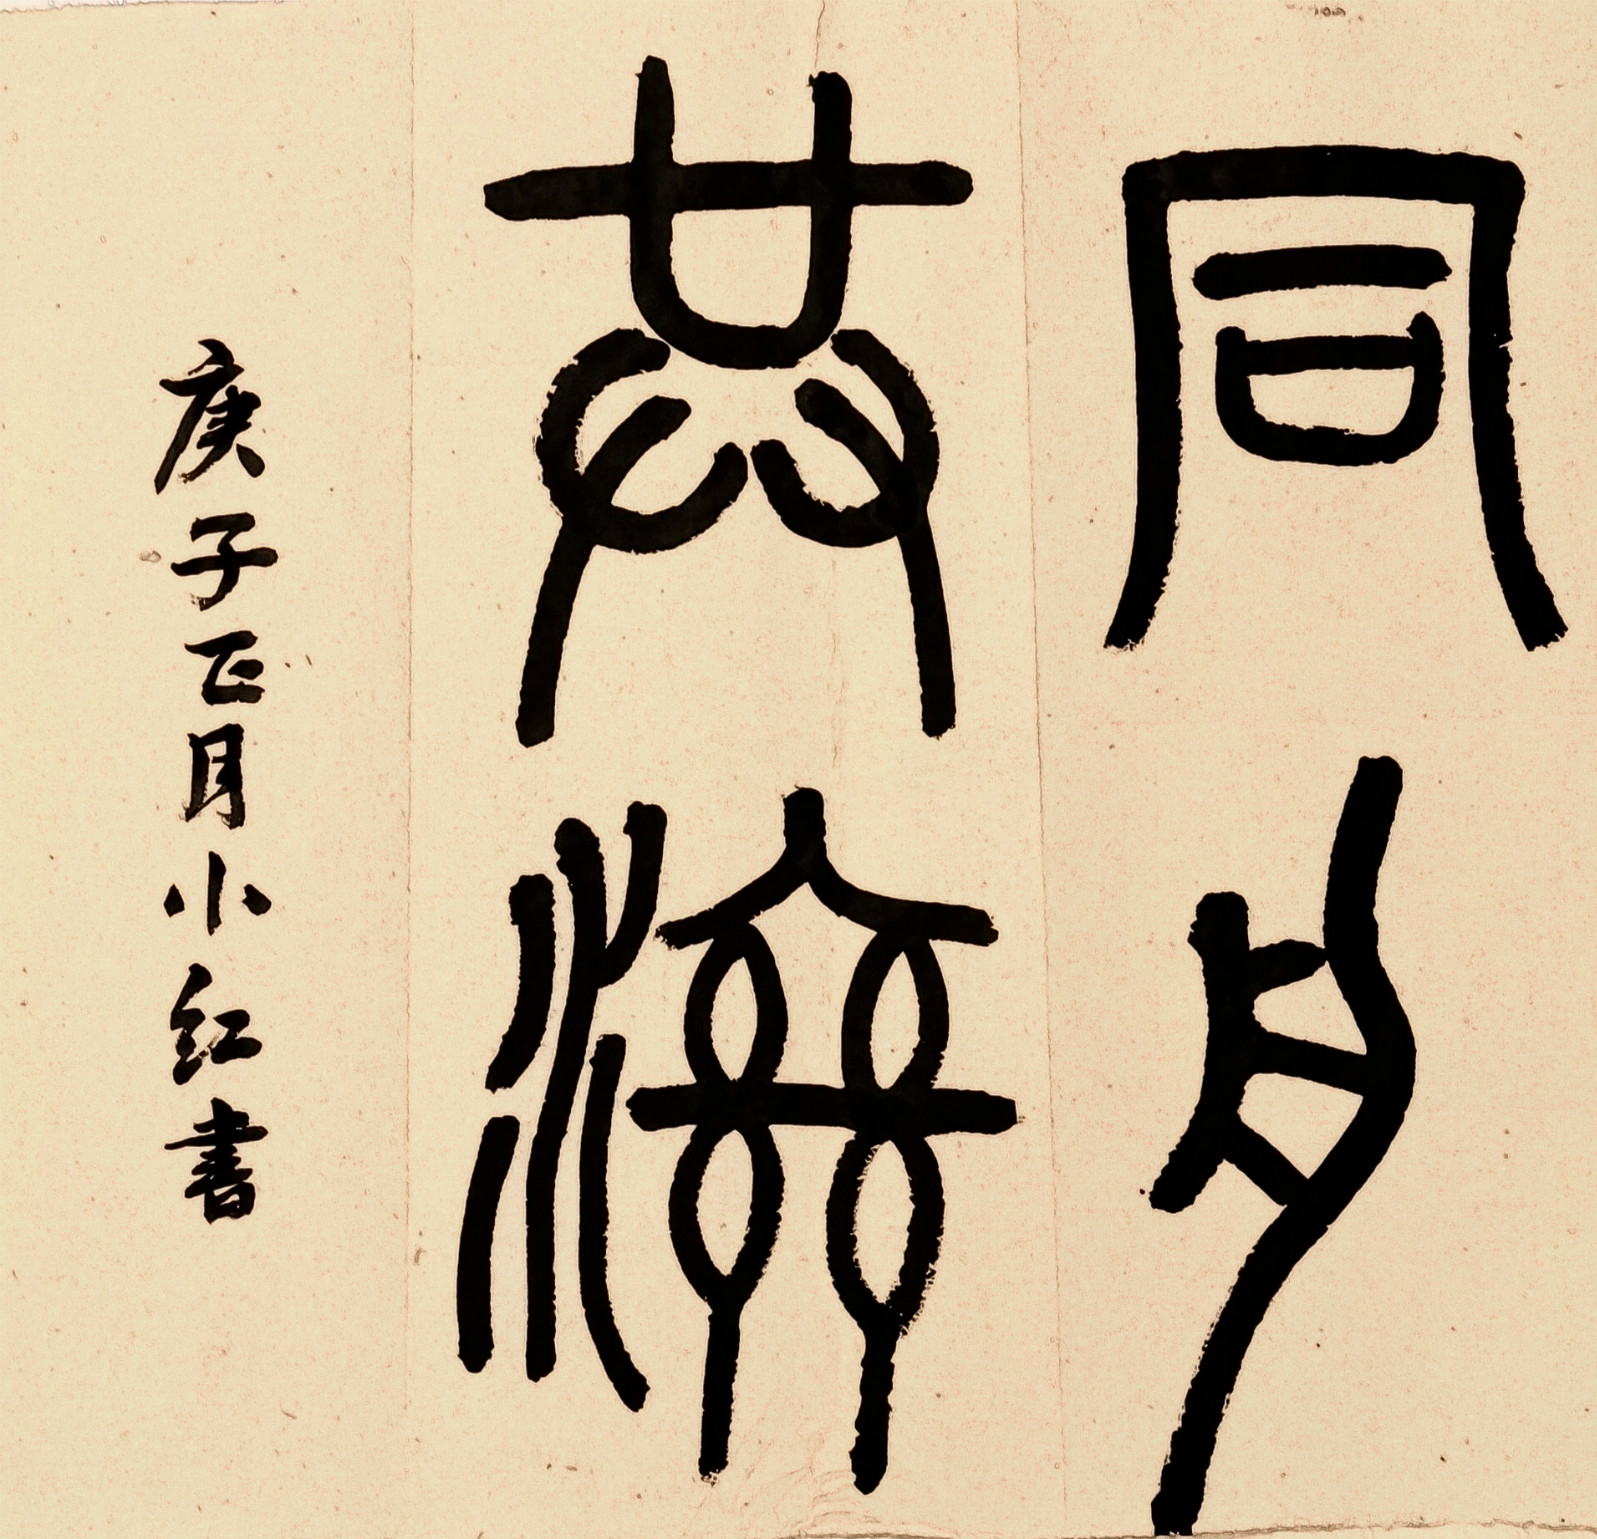 同舟
共濟
庚子正月小红書